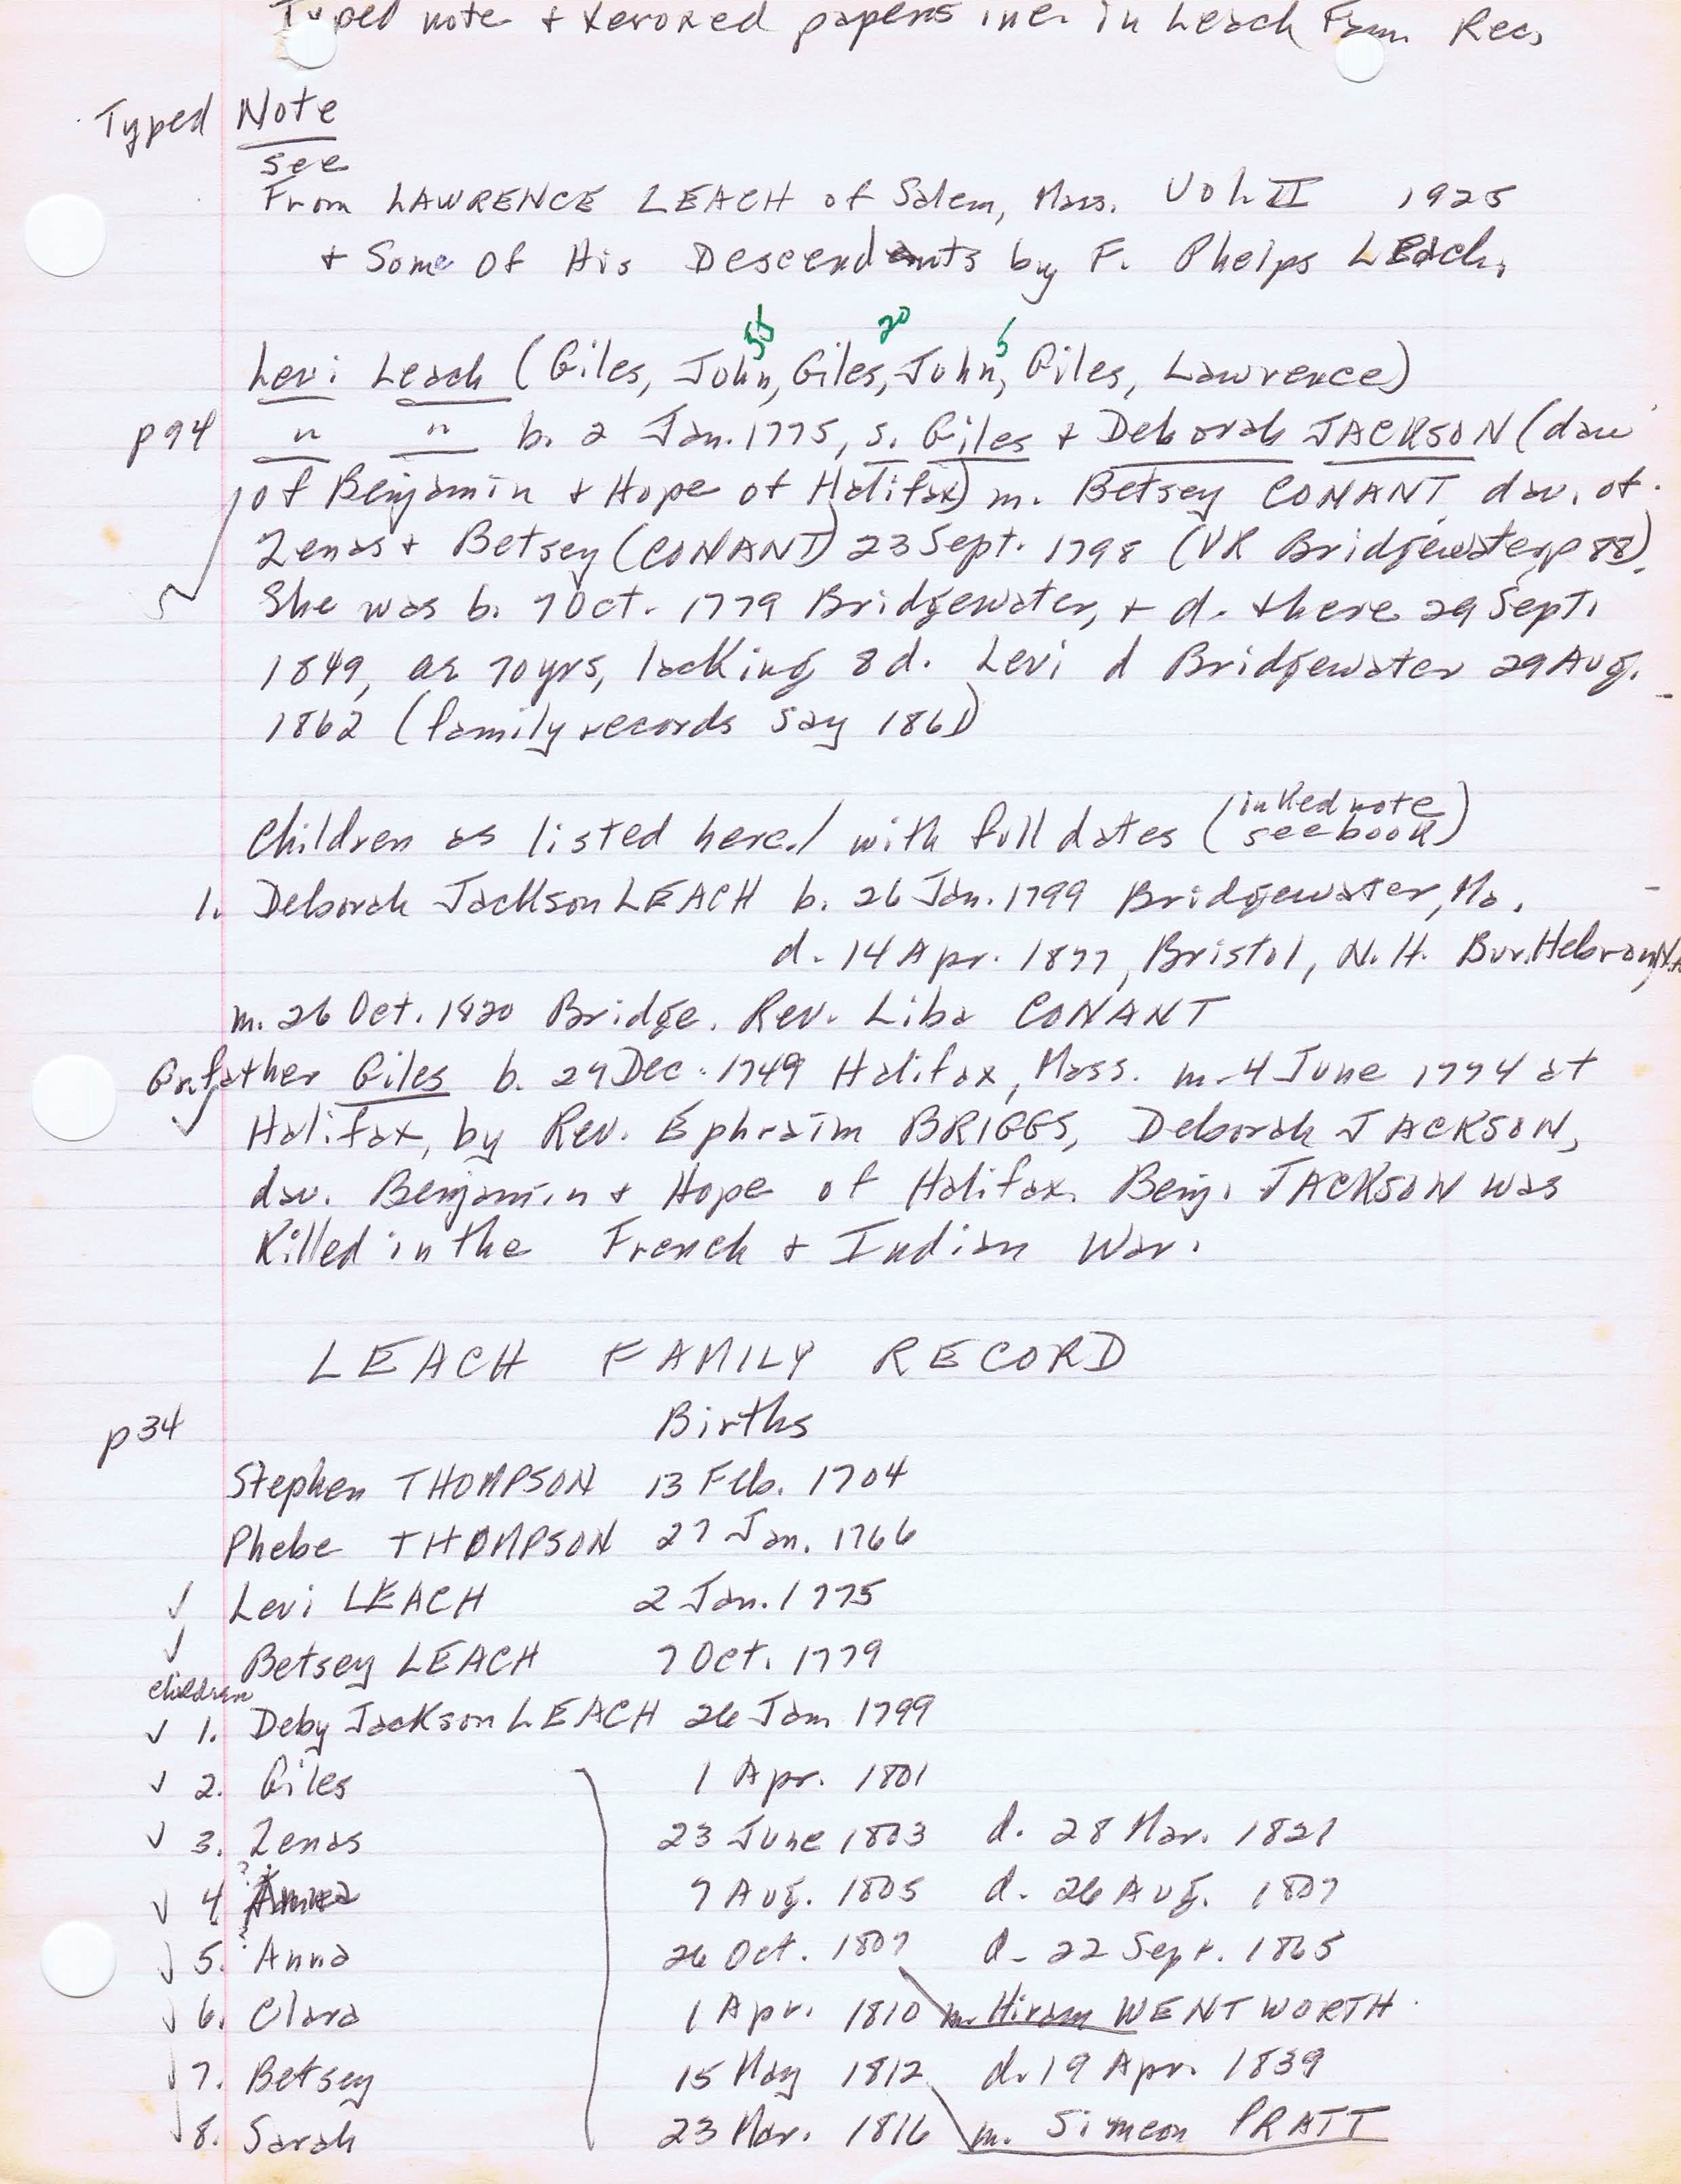 Typed note + xeroxed papers inc. in Leach Fam. Rec.
Typed Note
see
From LAWRENCE LEACH of Salem, Mass. Vol. II 1925
+ Some of His Descendants by F. Phelps LEach.
55 20 5
Levi Leach (Giles, John, Giles, John, Giles, Lawrence)
p94 " " b. 2 Jan. 1775, s. Giles + Deborah JACKSON (dau
of Benjamin + Hope of Halifax) m. Betsey CONANT dau. of
Zenas + Betsey (CONANT) 23 Sept. 1798 (VR Bridgewater p 88).
She was b. 7 Oct. 1779 Bridgewater, + d. there 29 Sept.
1849, ae 70 yrs, lacking 8 d. Levi d Bridgewater 29 Aug.
1862 (family records say 1861)
Children as listed here / with full dates (inked note see book)
1. Deborah Jackson LEACH b. 26 Jan. 1799 Bridgewater, Ma.
d. 14 Apr. 1877, Bristol, N.H. Bur. Hebron, N.H.
m. 26 Oct. 1820 Bridge. Rev. Liba CONANT
Grfather Giles b. 29 Dec. 1749 Halifax, Mass. m. 4 June 1774 at
Halifax, by Rev. Ephraim BRIGGS, Deborah JACKSON,
dau. Benjamin + Hope of Halifax. Benj. JACKSON was
Killed in the French + Indian War.
LEACH FAMILY RECORD
p34 Births
Stephen THOMPSON 13 Feb. 1704
Phebe THOMPSON 27 Jan. 1766
✓ Levi LEACH 2 Jan. 1775
✓ Betsey LEACH 7 Oct. 1779
children
✓ 1. Deby Jackson LEACH 26 Jan 1799
✓ 2. Giles 1 Apr. 1801
✓ 3. Zenas 23 June 1803 d. 28 Mar. 1821
✓ 4 ? 7 Aug. 1805 d. 26 Aug. 1807
✓ 5. ? Anna 26 Oct. 1807 d. 22 Sept. 1865
✓ 6. Clara 1 Apr. 1810 m. Hiram WENTWORTH
✓ 7. Betsey 15 May 1812 d. 19 Apr. 1839
✓ 8. Sarah 23 Mar. 1816 m. Simeon PRATT